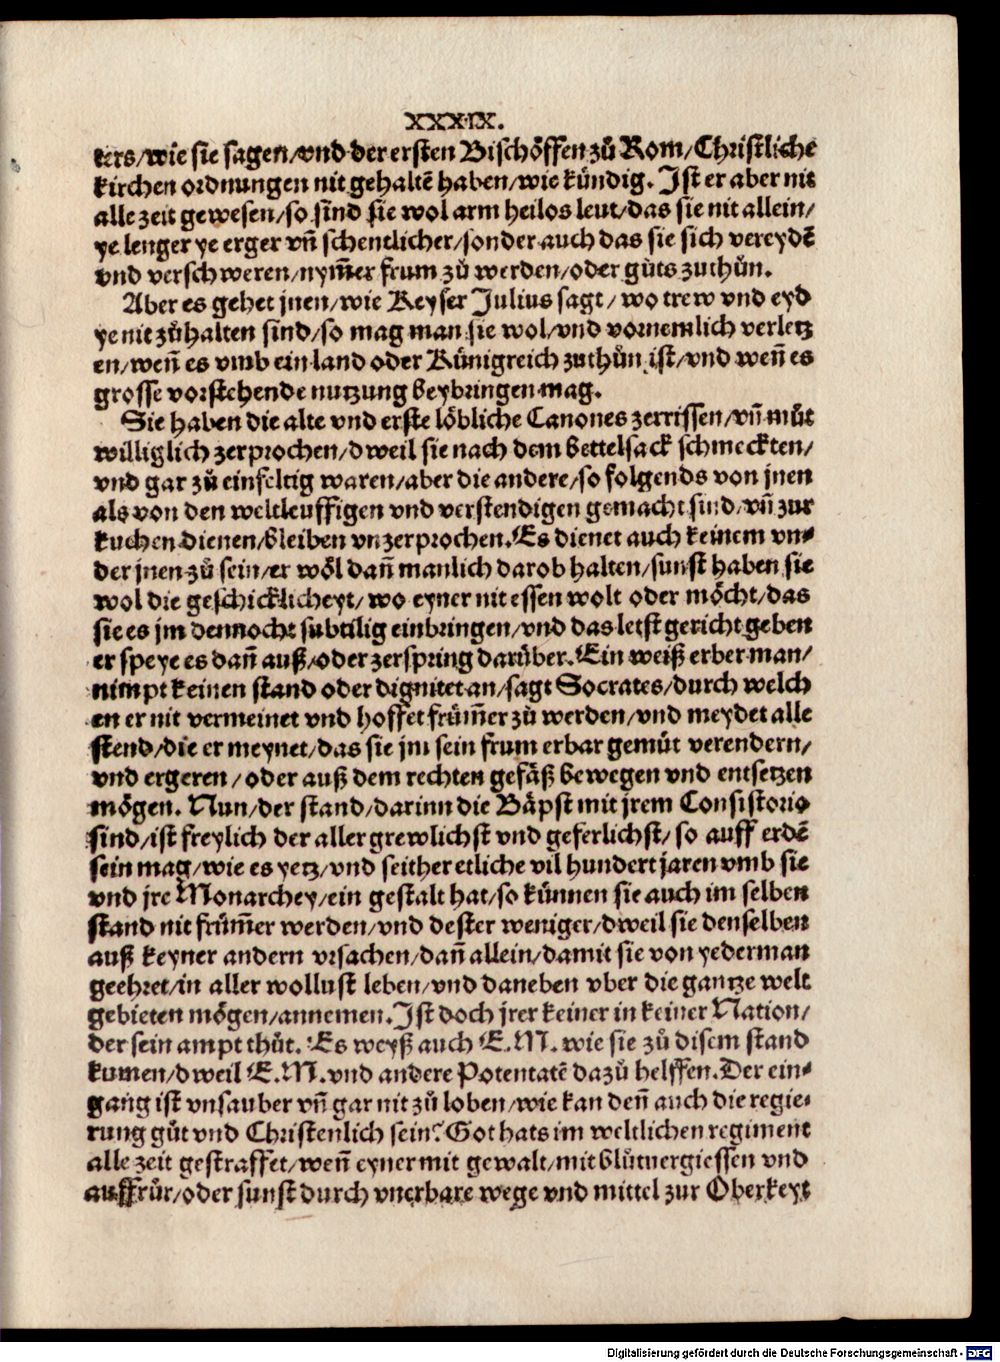 XXXIX.
ters/wie sie sagen/vnd der ersten Bischöffen zů Rom/Christliche
kirchen ordnungen nit gehaltē haben/wie kündig. Jst er aber nit
alle zeit gewesen/so sind sie wol arm heilos leut/das sie nit allein/
ye lenger ye erger vñ schentlicher/sonder auch das sie sich vereydē
vnd verschweren/nym̃er frum zů werden/oder gůts zuthůn.
Aber es gehet jnen/wie Keyser Julius sagt/wo trew vnd eyd
ye nit zůhalten sind/so mag man sie wol/vnd vornemlich verletz
en/weñ es vmb ein land oder Künigreich zuthůn ist/vnd weñ es
grosse vorstehende nutzung beybringen mag.
Sie haben die alte vnd erste löbliche Canones zerrissen/vñ můt
williglich zerprochen/dweil sie nach dem bettelsack schmeckten/
vnd gar zů einfeltig waren/aber die andere/so folgends von jnen
als von den weltleuffigen vnd verstendigen gemacht sind/vñ zur
kuchen dienen/bleiben vnzerprochen. Es dienet auch keinem vn⸗
der jnen zů sein/er wöl dañ manlich darob halten/sunst haben sie
wol die geschicklicheyt/wo eyner nit essen wolt oder möcht/das
sie es jm dennocht subtilig einbringen/vnd das letst gericht geben
er speye es dañ auß/oder zerspring darüber. Ein weiß erber man/
nimpt keinen stand oder dignitet an/sagt Socrates/durch welch
en er nit vermeinet vnd hoffet früm̃er zů werden/vnd meydet alle
stend/die er meynet/das sie jm sein frum erbar gemüt verendern/
vnd ergeren/oder auß dem rechten gefäß bewegen vnd entsetzen
mögen. Nun/der stand/darinn die Bäpst mit jrem Consistorio
sind/ist freylich der aller grewlichst vnd geferlichst/so auff erdē
sein mag/wie es yetz/vnd seither etliche vil hundert jaren vmb sie
vnd jre Monarchey/ein gestalt hat/so künnen sie auch im selben
stand nit früm̃er werden/vnd dester weniger/dweil sie denselben
auß keyner andern vrsachen/dañ allein/damit sie von yederman
geehret/in aller wollust leben/vnd daneben vber die gantze welt
gebieten mögen/annemen. Jst doch jrer keiner in keiner Nation/
der sein ampt thůt. Es weyß auch E.M. wie sie zů disem stand
kumen/dweil E.M. vnd andere Potentatē dazů helffen. Der ein⸗
gang ist vnsauber vñ gar nit zů loben/wie kan deñ auch die regie⸗
rung gůt vnd Christenlich sein? Got hats im weltlichen regiment
alle zeit gestraffet/weñ eyner mit gewalt/mit blůtuergiessen vnd
auffrůr/oder sunst durch vnerbare wege vnd mittel zur Oberkeyt
Digitalisierung gefördert durch die Deutsche Forschungsgemeinschaft - DFG